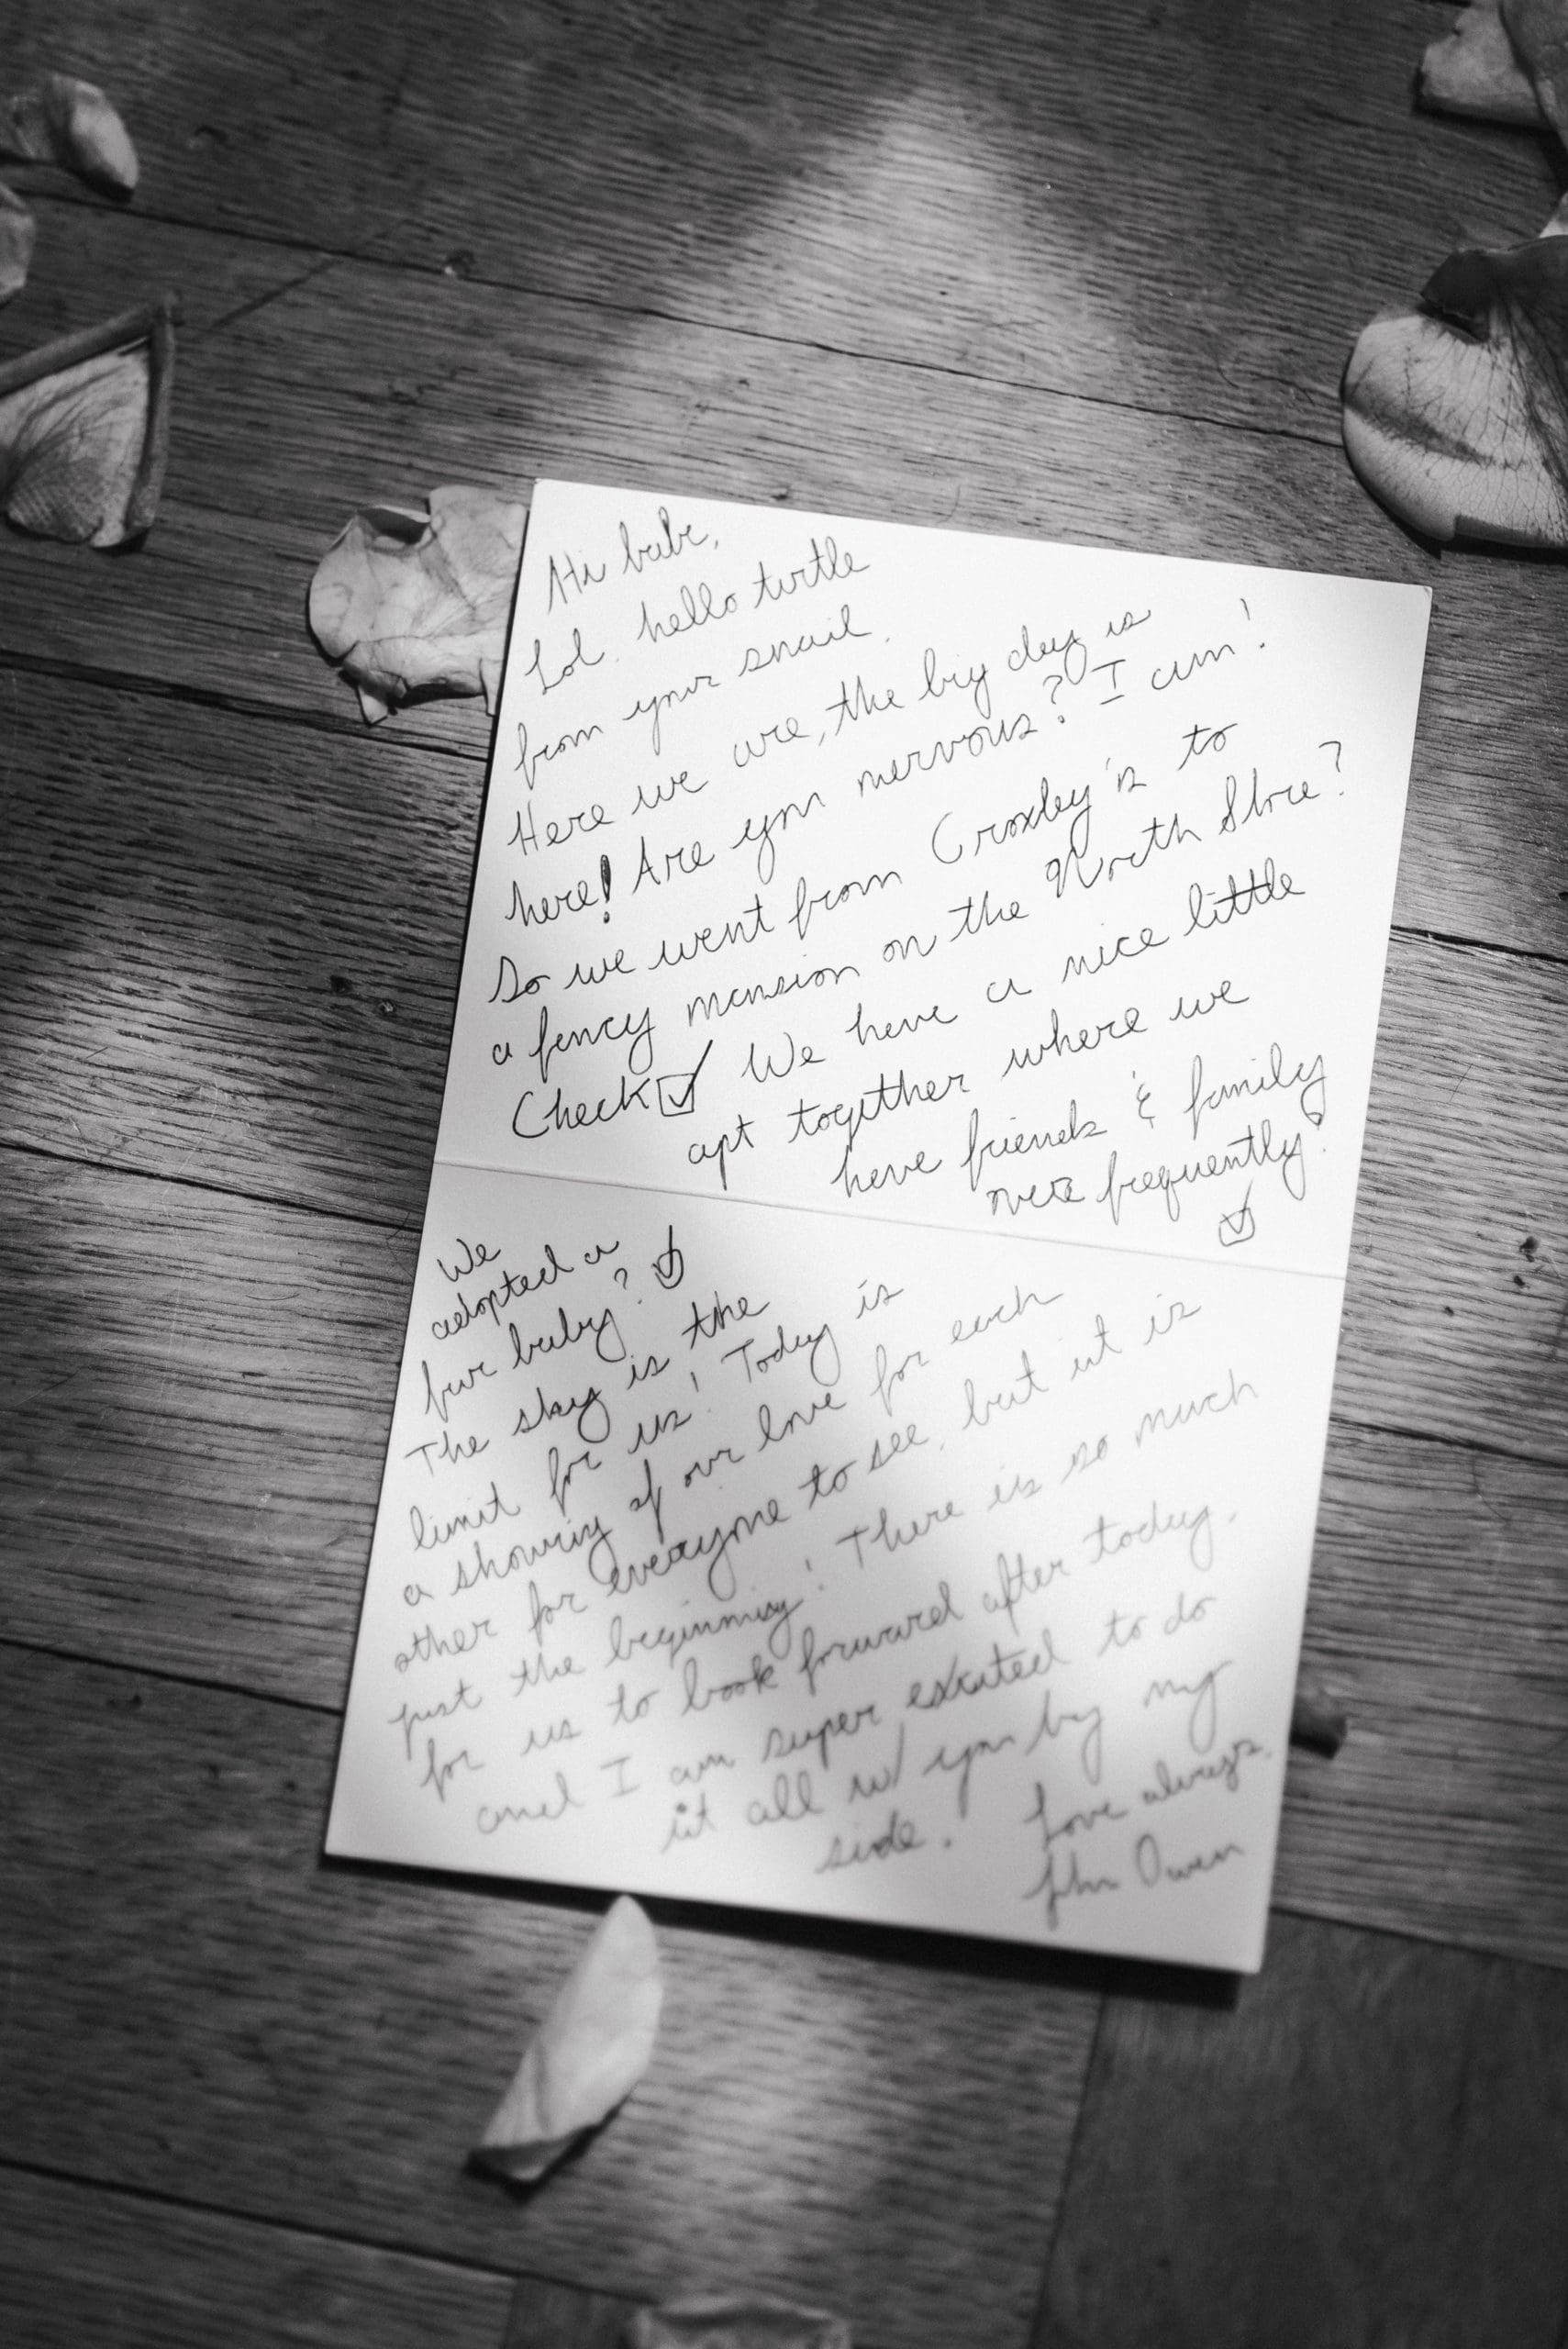 Hi babe,
Lol. hello turtle
from your snail.
Here we are, the big day is
here! Are you nervous? I am!
So we went from Croxley's to
a fancy mansion on the North Shore?
Check ☑ We have a nice little
apt together where we
have friends & family
over frequently? ☑
We
adopted a
fur baby? ☑
The sky is the
limit for us! Today is
a showing of our love for each
other for everyone to see, but it is
just the beginning! There is so much
for us to look forward after today,
and I am super excited to do
it all w/ you by my
side. Love always,
John Owen